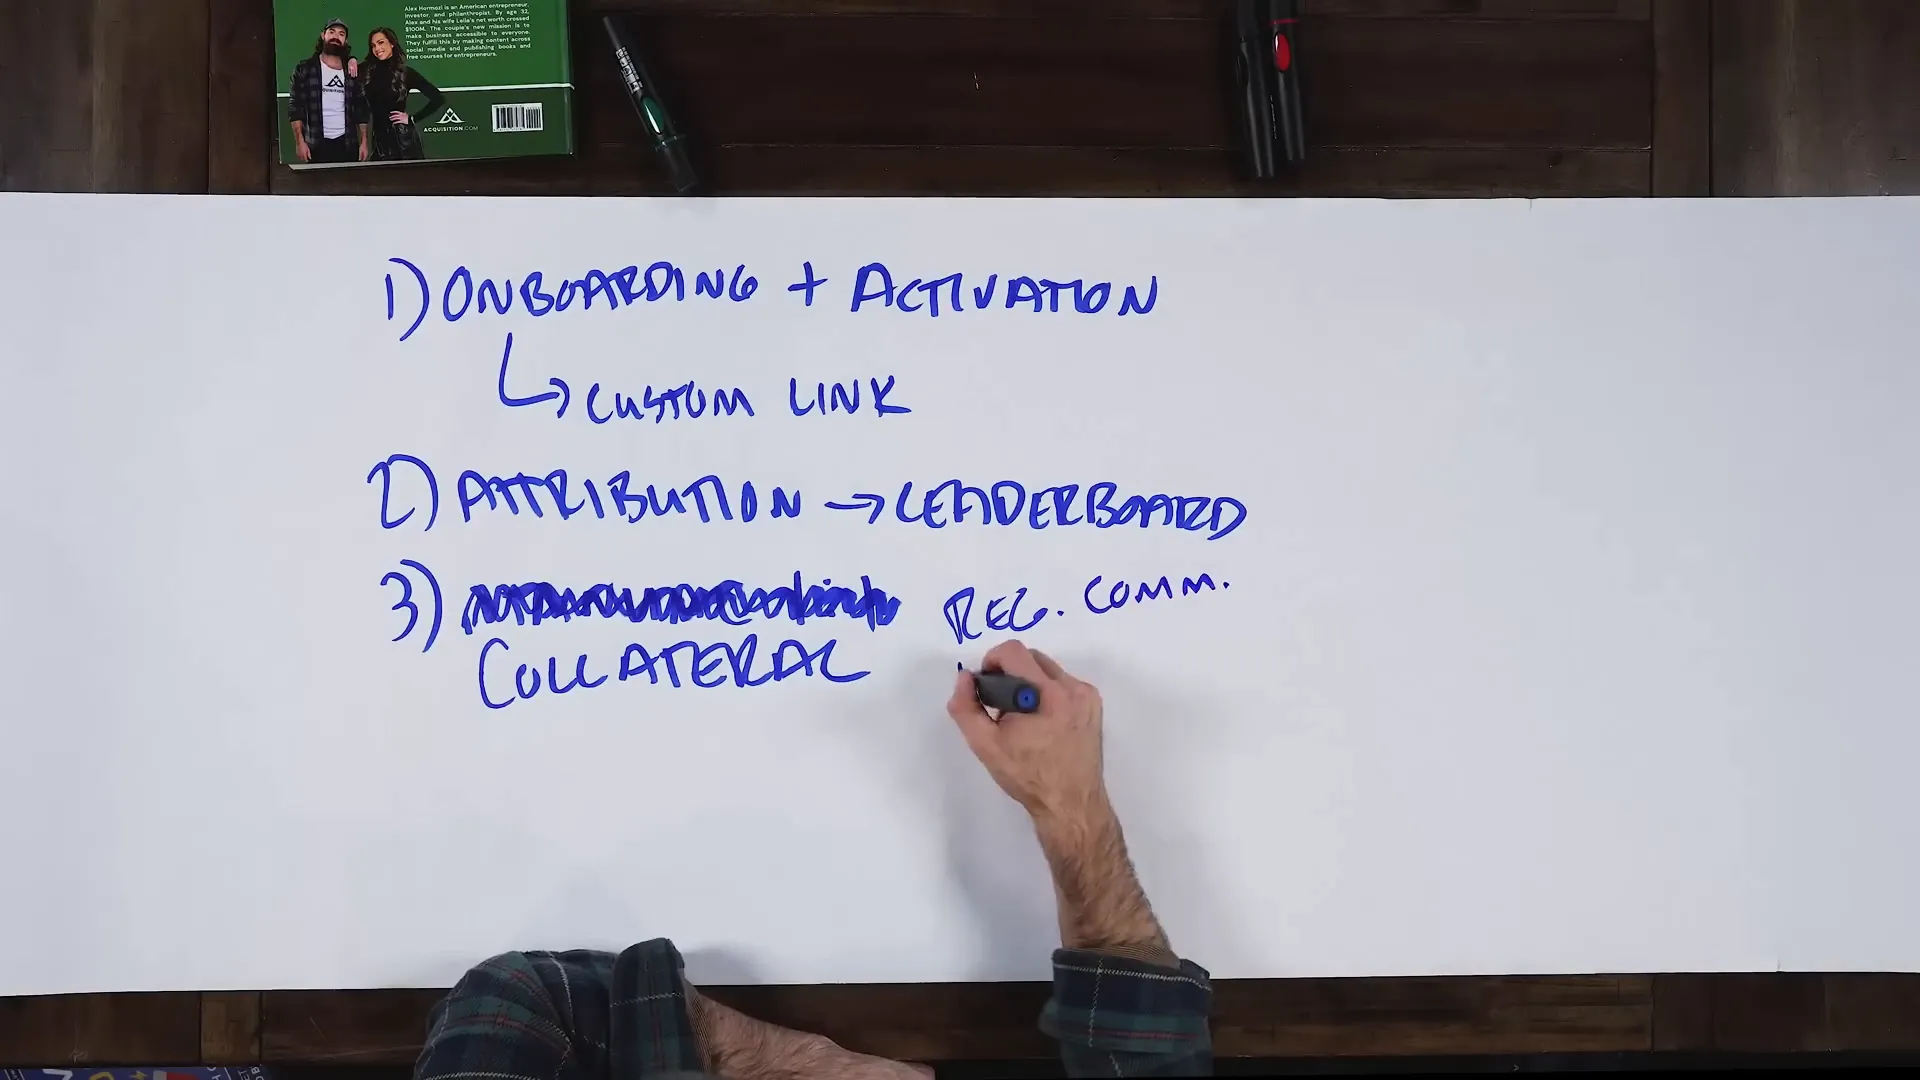 Alex Hormozi is an American entrepreneur,
investor, and philanthropist. By age 32,
Alex and his wife Leila's net worth crossed
$100M. The couple's new mission is to
make business accessible to everyone.
They fulfill this by making content across
social media and publishing books and
free courses for entrepreneurs.
ACQUISITION.COM
1) ONBOARDING + ACTIVATION
CUSTOM LINK
2) ATTRIBUTION → LEADERBOARD
3) REG. COMM.
COLLATERAL